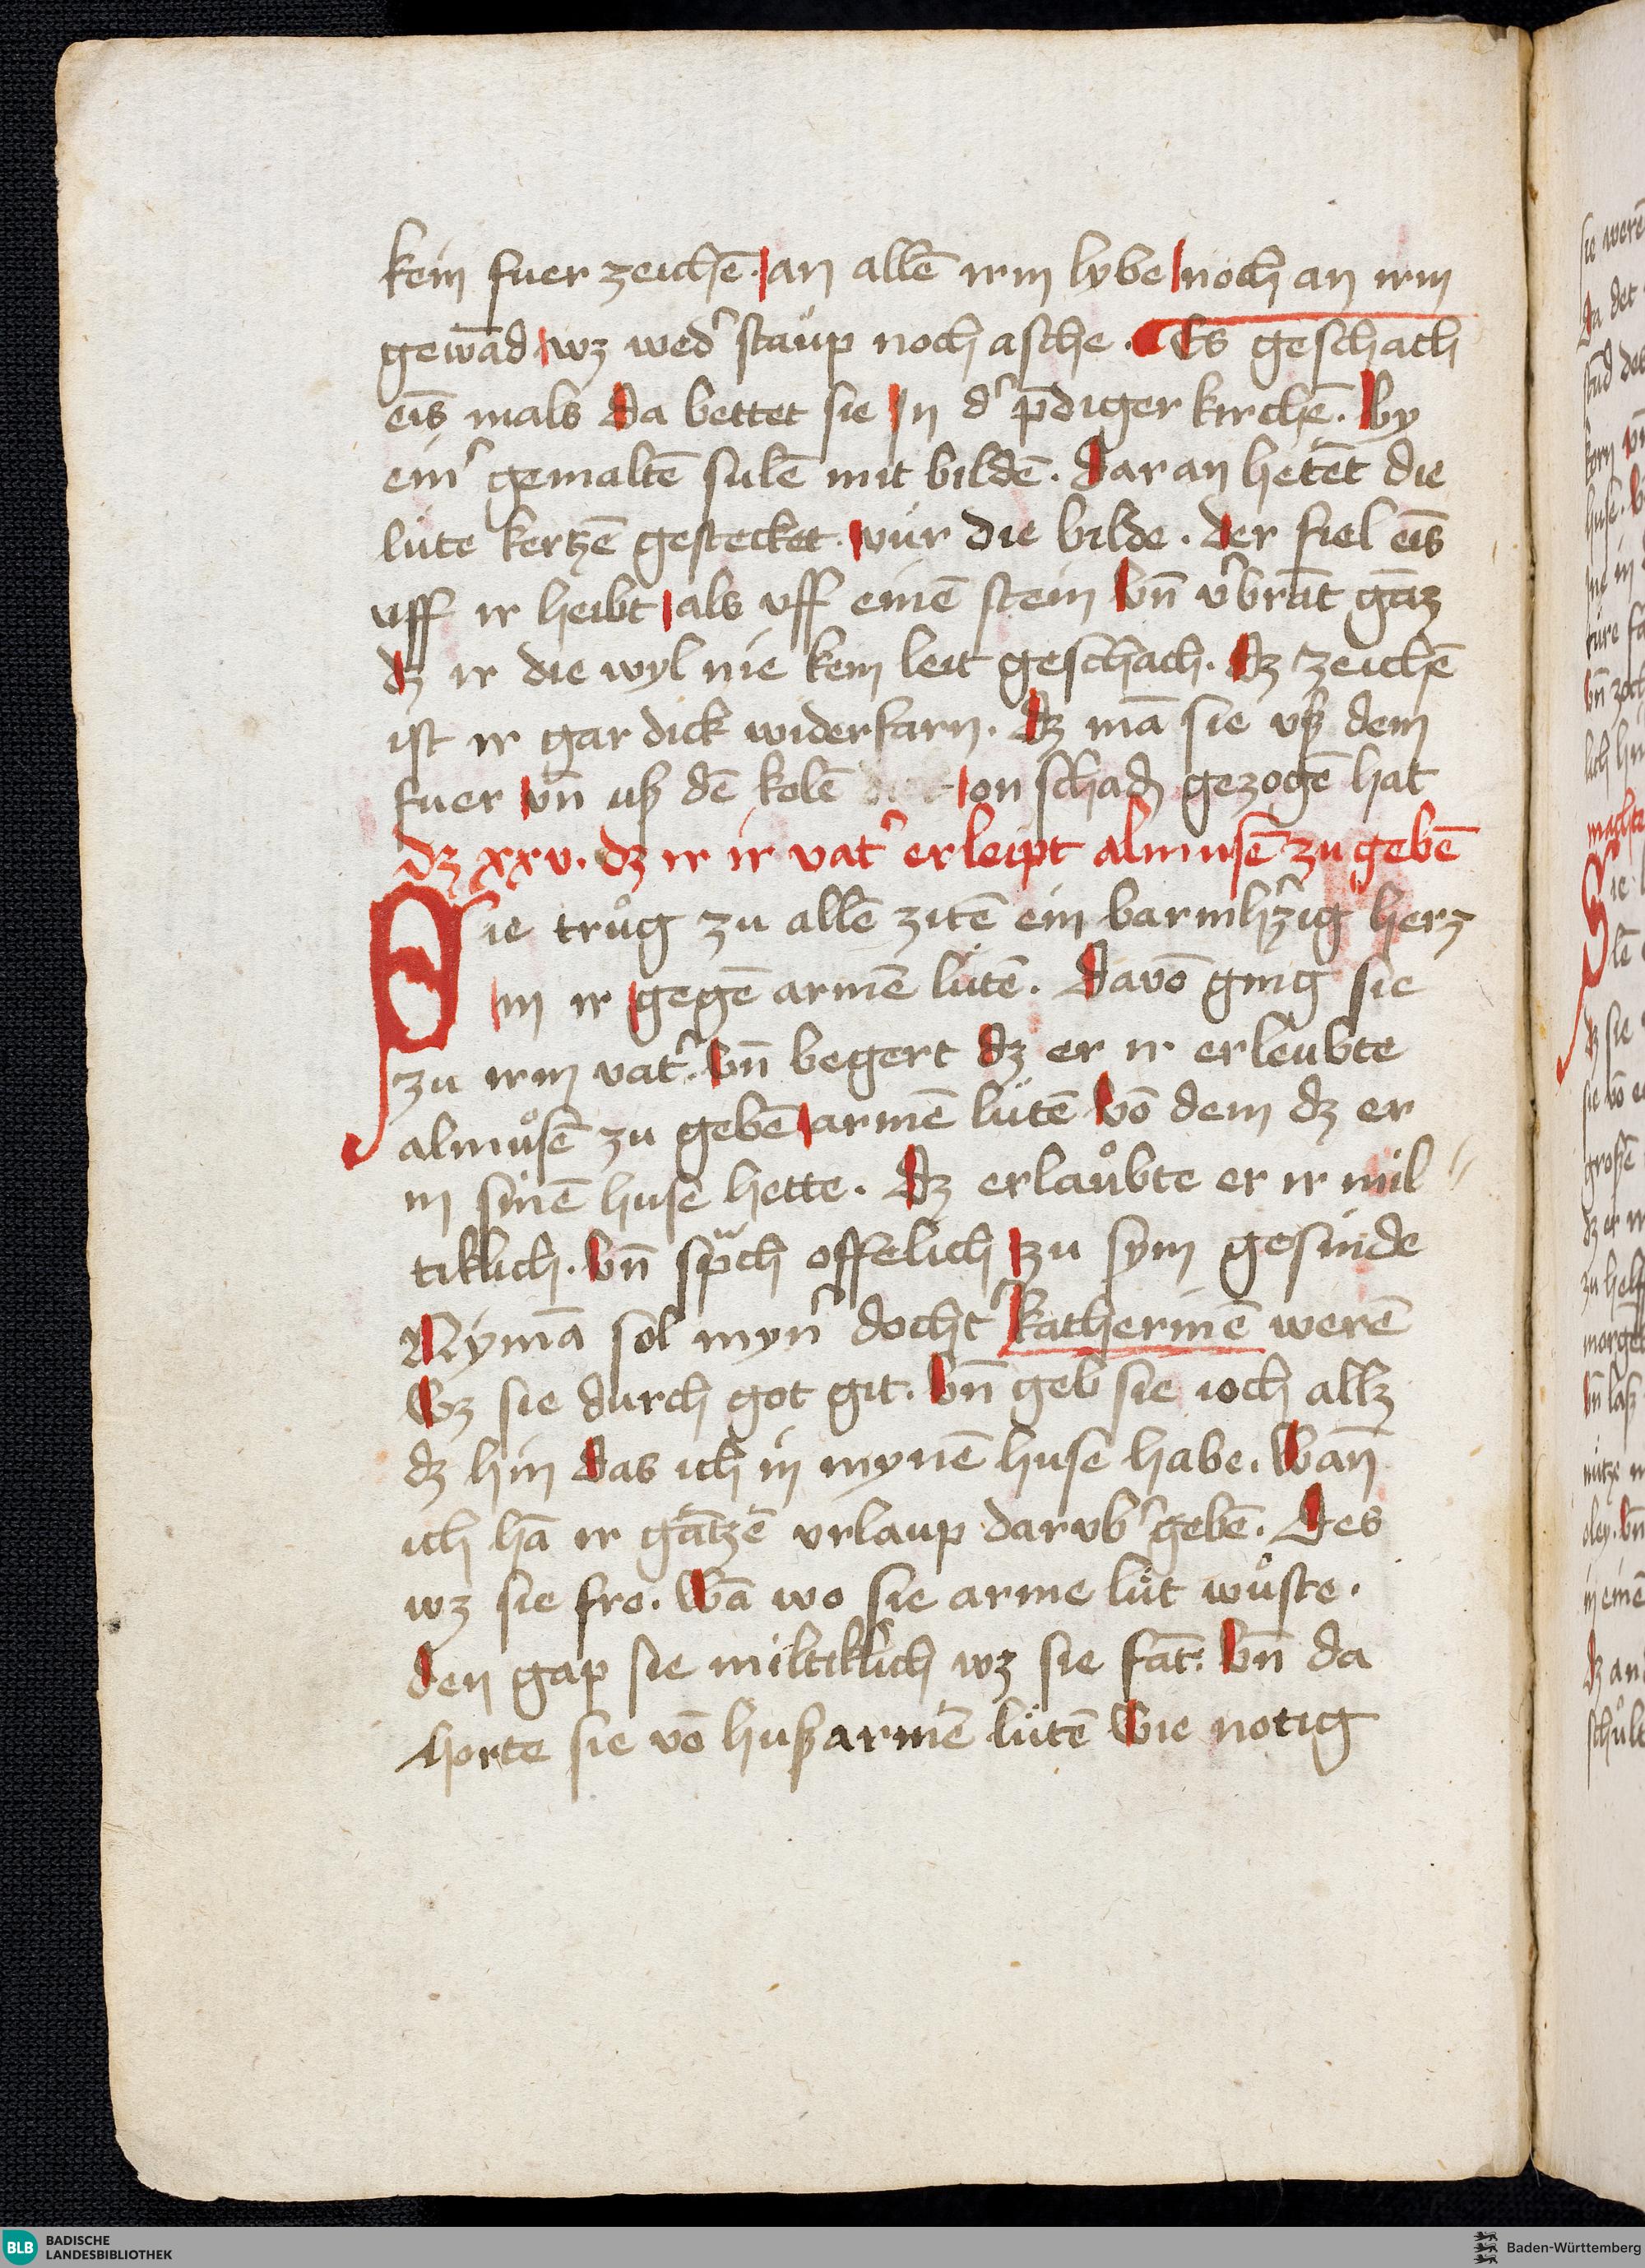 kein fuer zeichē · an allē irm lybe noch an irm
gewād wz wedʾ staüp noch asche · Es geschach
eīs mals da bettet sie In dʾ p̄diger kirchē · by
einʾ gemaltē sulē mit bildē · dar an hetēt die
lüte kertzē gestecket · vür die bilde · der fiel eīs
uff ir heibt als vff einē stein vn̄ vʾbrāt gāz
dz ir die wyl nie kein leit geschach · dz zeichē
ist ir gar dick widerfarn · dz mā sie vß dem
fuer vn̄ uß dē kolē on schadē gezogē hat
dz xxv · dz ir ir vatʾ erleipt almusē zu gebē
Sie trůg zu allē zitē ein barmhʾzig herz
in ir gegē armē lütē · Davō ging sie
zu irm vatʾ · vn̄ begert dz er ir erleubte
almůsē zu gebē armē lütē vō dem dz er
in sinē huse hette · dz erlaůbte er ir mil
tiklich · vn̄ spͣch offelich zu sym gesinde
Nymā sol mynʾ dochtʾ katherinē werē
Wz sie durch got git · vn̄ geb sie ioch allz
dz hin das ich in mynē huse habe · Wan̄
ich hā ir gātzē vrlaup darvbʾ gebē · Des
wz sie fro · Wā wo sie arme lüt wůste ·
den gap sie miltiklich wz sie fāt · vn̄ da
horte sie vō hußarmē lütē wie notig
BLB BADISCHE
LANDESBIBLIOTHEK
Baden-Württemberg